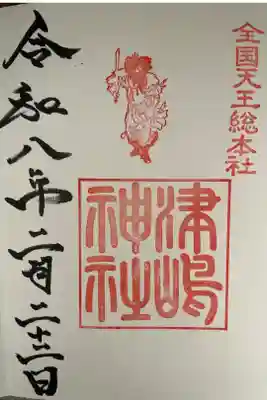 全国天王総本社
津嶋
神社
令和八年二月二十二日